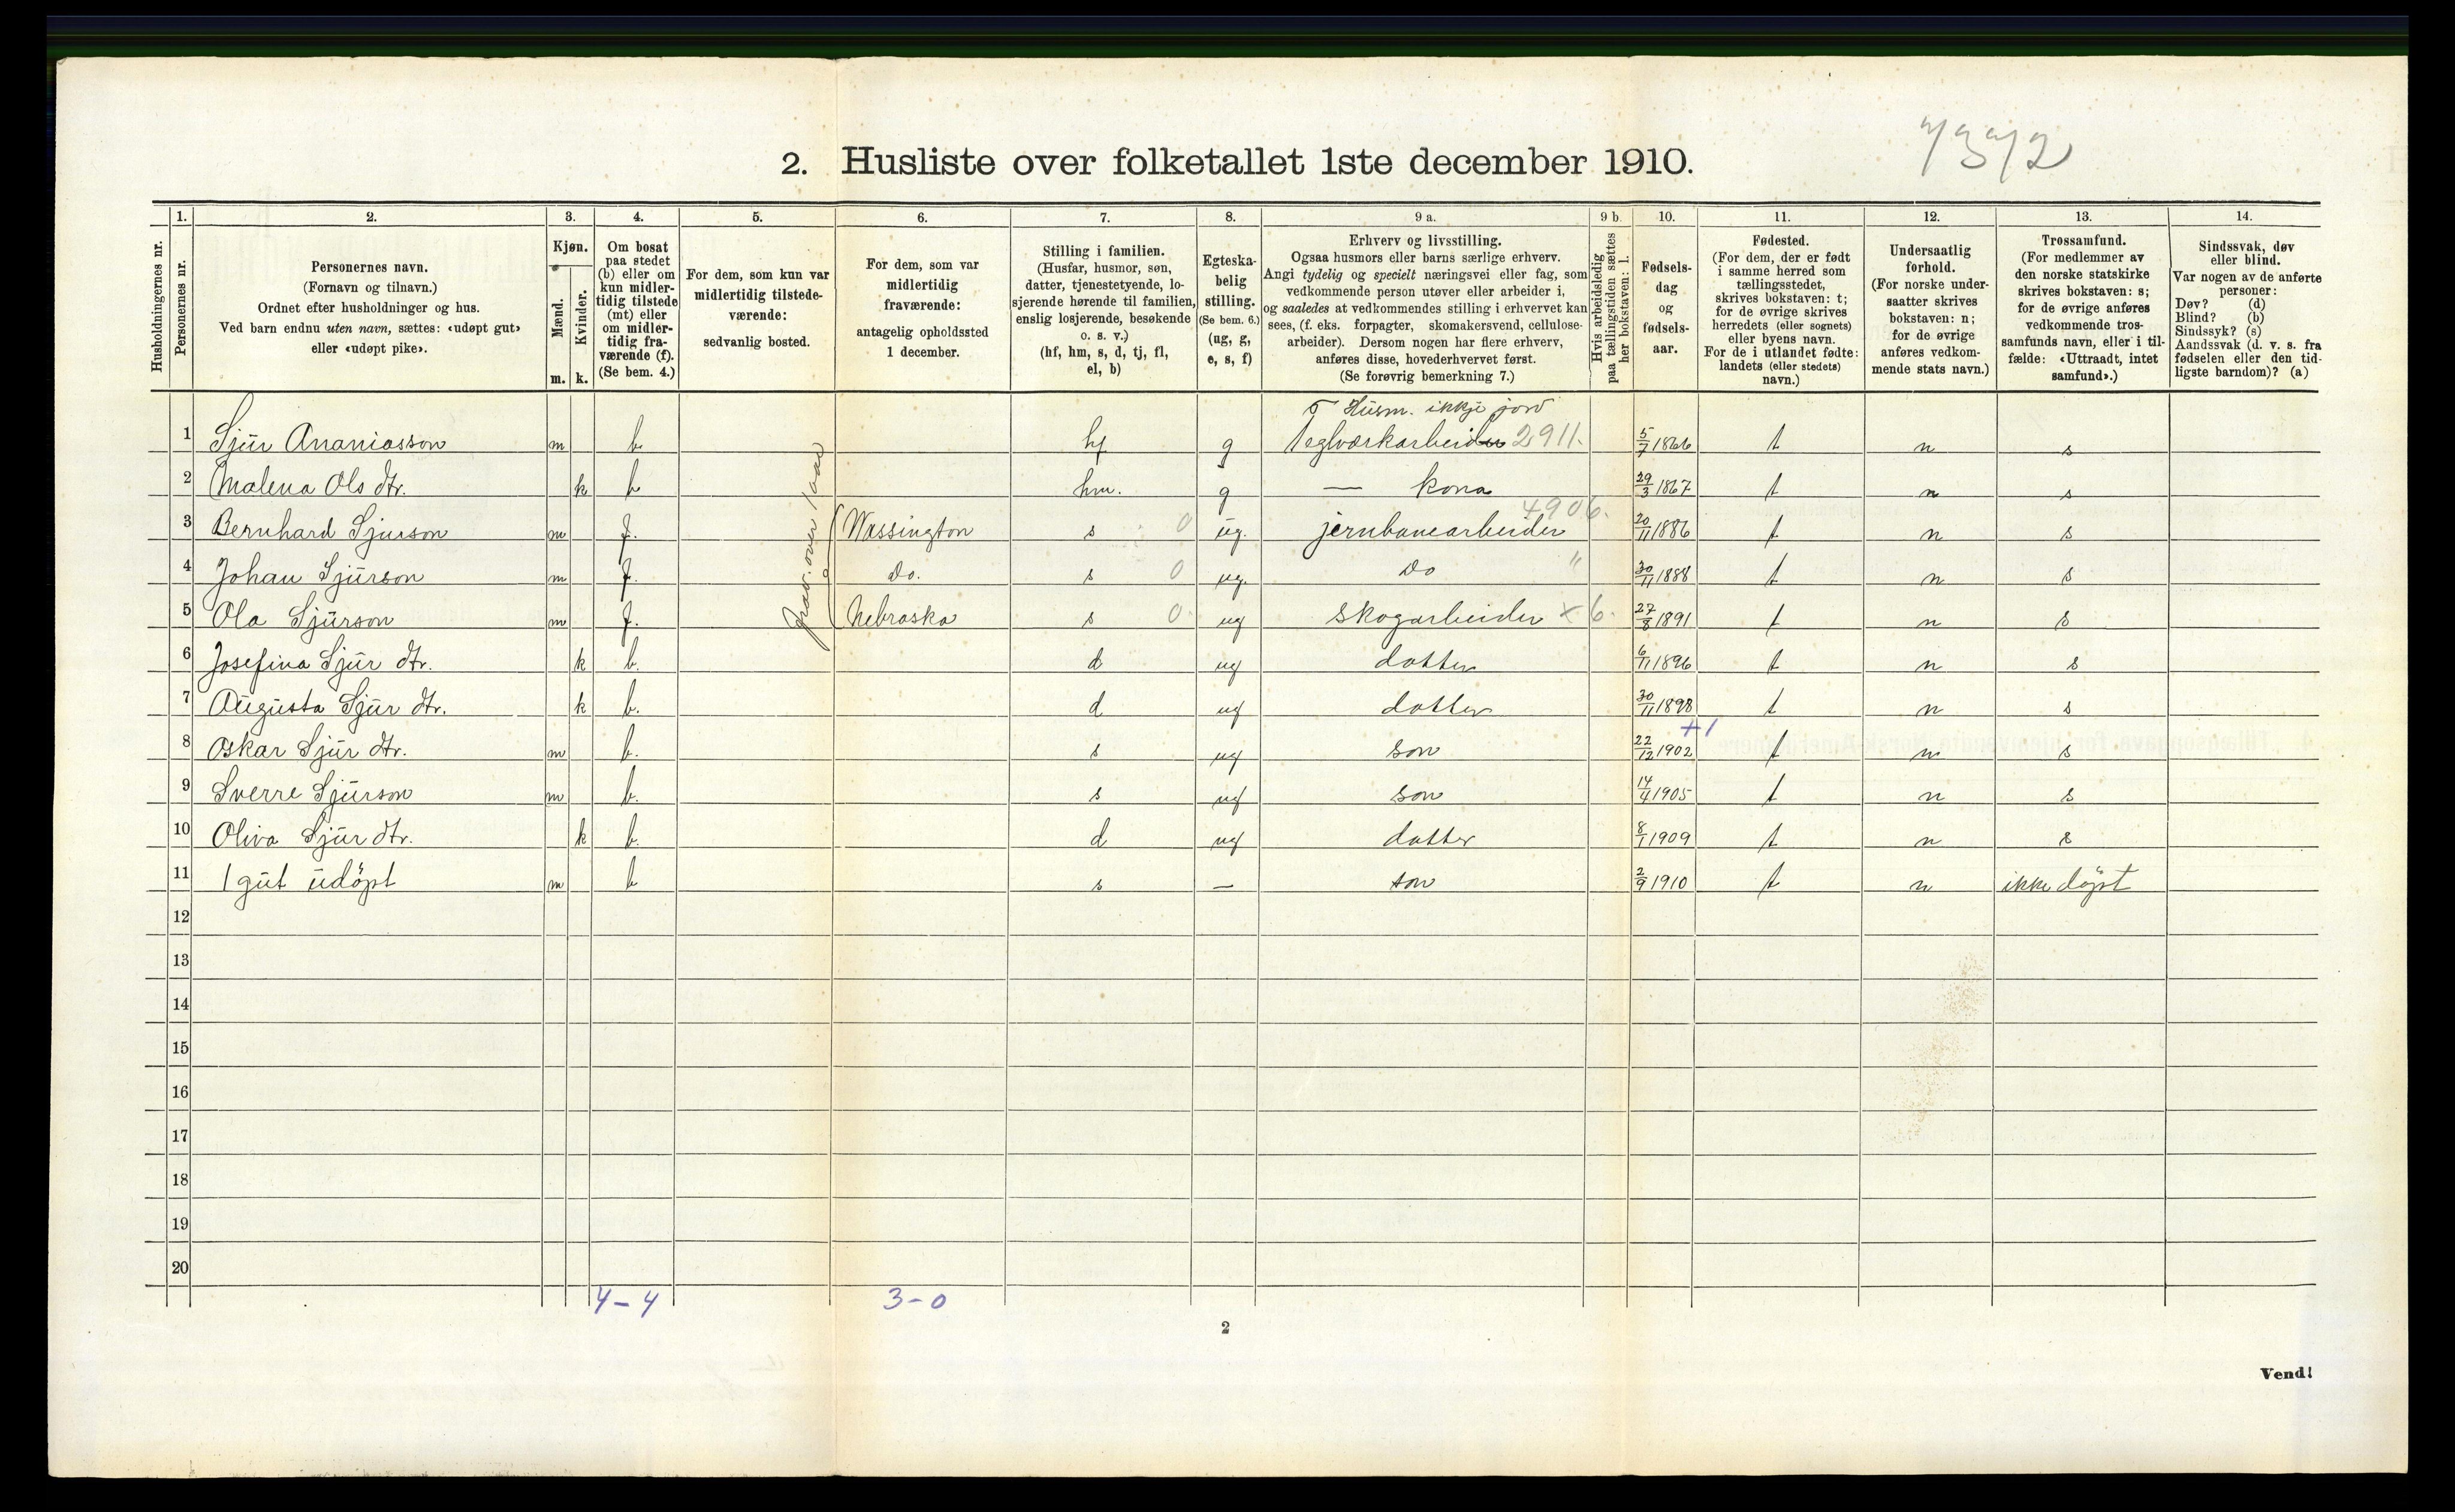 7372
2. Husliste over folketallet 1ste december 1910.
1. 2. 3. 4. 5. 6. 7. 8. 9 a. 9 b. 10. 11. 12. 13. 14.
Husholdningernes nr.
Personernes nr.
Personernes navn.
(Fornavn og tilnavn.)
Ordnet efter husholdninger og hus.
Ved barn endnu uten navn, sættes: «udøpt gut»
eller «udøpt pike».
Kjøn.
Mænd.
Kvinder.
m. k.
Om bosat
paa stedet
(b) eller om
kun midler-
tidig tilstede
(mt) eller
om midler-
tidig fra-
værende (f).
(Se bem. 4.)
For dem, som kun var
midlertidig tilstede-
værende:
sedvanlig bosted.
For dem, som var
midlertidig
fraværende:
antagelig opholdssted
1 december.
Stilling i familien.
(Husfar, husmor, søn,
datter, tjenestetyende, lo-
sjerende hørende til familien,
enslig losjerende, besøkende
o. s. v.)
(hf, hm, s, d, tj, fl,
el, b)
Egteska-
belig
stilling.
(Se bem. 6.)
(ug, g,
e, s, f)
Erhverv og livsstilling.
Ogsaa husmors eller barns særlige erhverv.
Angi tydelig og specielt næringsvei eller fag, som
vedkommende person utøver eller arbeider i,
og saaledes at vedkommendes stilling i erhvervet kan
sees, (f. eks. forpagter, skomakersvend, cellulose-
arbeider). Dersom nogen har flere erhverv,
anføres disse, hovederhvervet først.
(Se forøvrig bemerkning 7.)
Hvis arbeidsledig
paa tællingstiden sættes
her bokstaven: l.
Fødsels-
dag
og
fødsels-
aar.
Fødested.
(For dem, der er født
i samme herred som
tællingsstedet,
skrives bokstaven: t;
for de øvrige skrives
herredets (eller sognets)
eller byens navn.
For de i utlandet fødte:
landets (eller stedets)
navn.)
Undersaatlig
forhold.
(For norske under-
saatter skrives
bokstaven: n;
for de øvrige
anføres vedkom-
mende stats navn.)
Trossamfund.
(For medlemmer av
den norske statskirke
skrives bokstaven: s;
for de øvrige anføres
vedkommende tros-
samfunds navn, eller i til-
fælde: «Uttraadt, intet
samfund».)
Sindssvak, døv
eller blind.
Var nogen av de anførte
personer:
Døv? (d)
Blind? (b)
Sindssyk? (s)
Aandssvak (d. v. s. fra
fødselen eller den tid-
ligste barndom)? (a)
Husm. ikkje jord
1 Sjur Ananiasson m b hf g Teglværkarbeider 2911. 5/7 1866 t n s
2 Malena Ols dtr. k b hm. g — kona 29/3 1867 t n s
4906.
3 Bernhard Sjurson m f. Wassington s 0 ug. jernbanearbeider 20/11 1886 t n s
4 Johan Sjurson m f. Do. s 0 ug. Do " 30/11 1888 t n s
5 Ola Sjurson m f. Nebraska s 0 ug skogarbeider x 6. 27/8 1891 t n s
frav. over 1 aar
6 Josefina Sjur dtr. k b. d ug datter 6/11 1896 t n s
7 Augusta Sjur dtr. k b. d ug datter 30/11 1898 t n s
+1
8 Oskar Sjur dtr. m b. s ug son 22/12 1902 t n s
9 Sverre Sjurson m b. s ug son 14/4 1905 t n s
10 Oliva Sjur dtr. k b. d ug datter 8/1 1909 t n s
11 1 gut udöpt m b s — son 2/9 1910 t n ikke döpt
12
13
14
15
16
17
18
19
20
4-4 3-0
2
Vend!